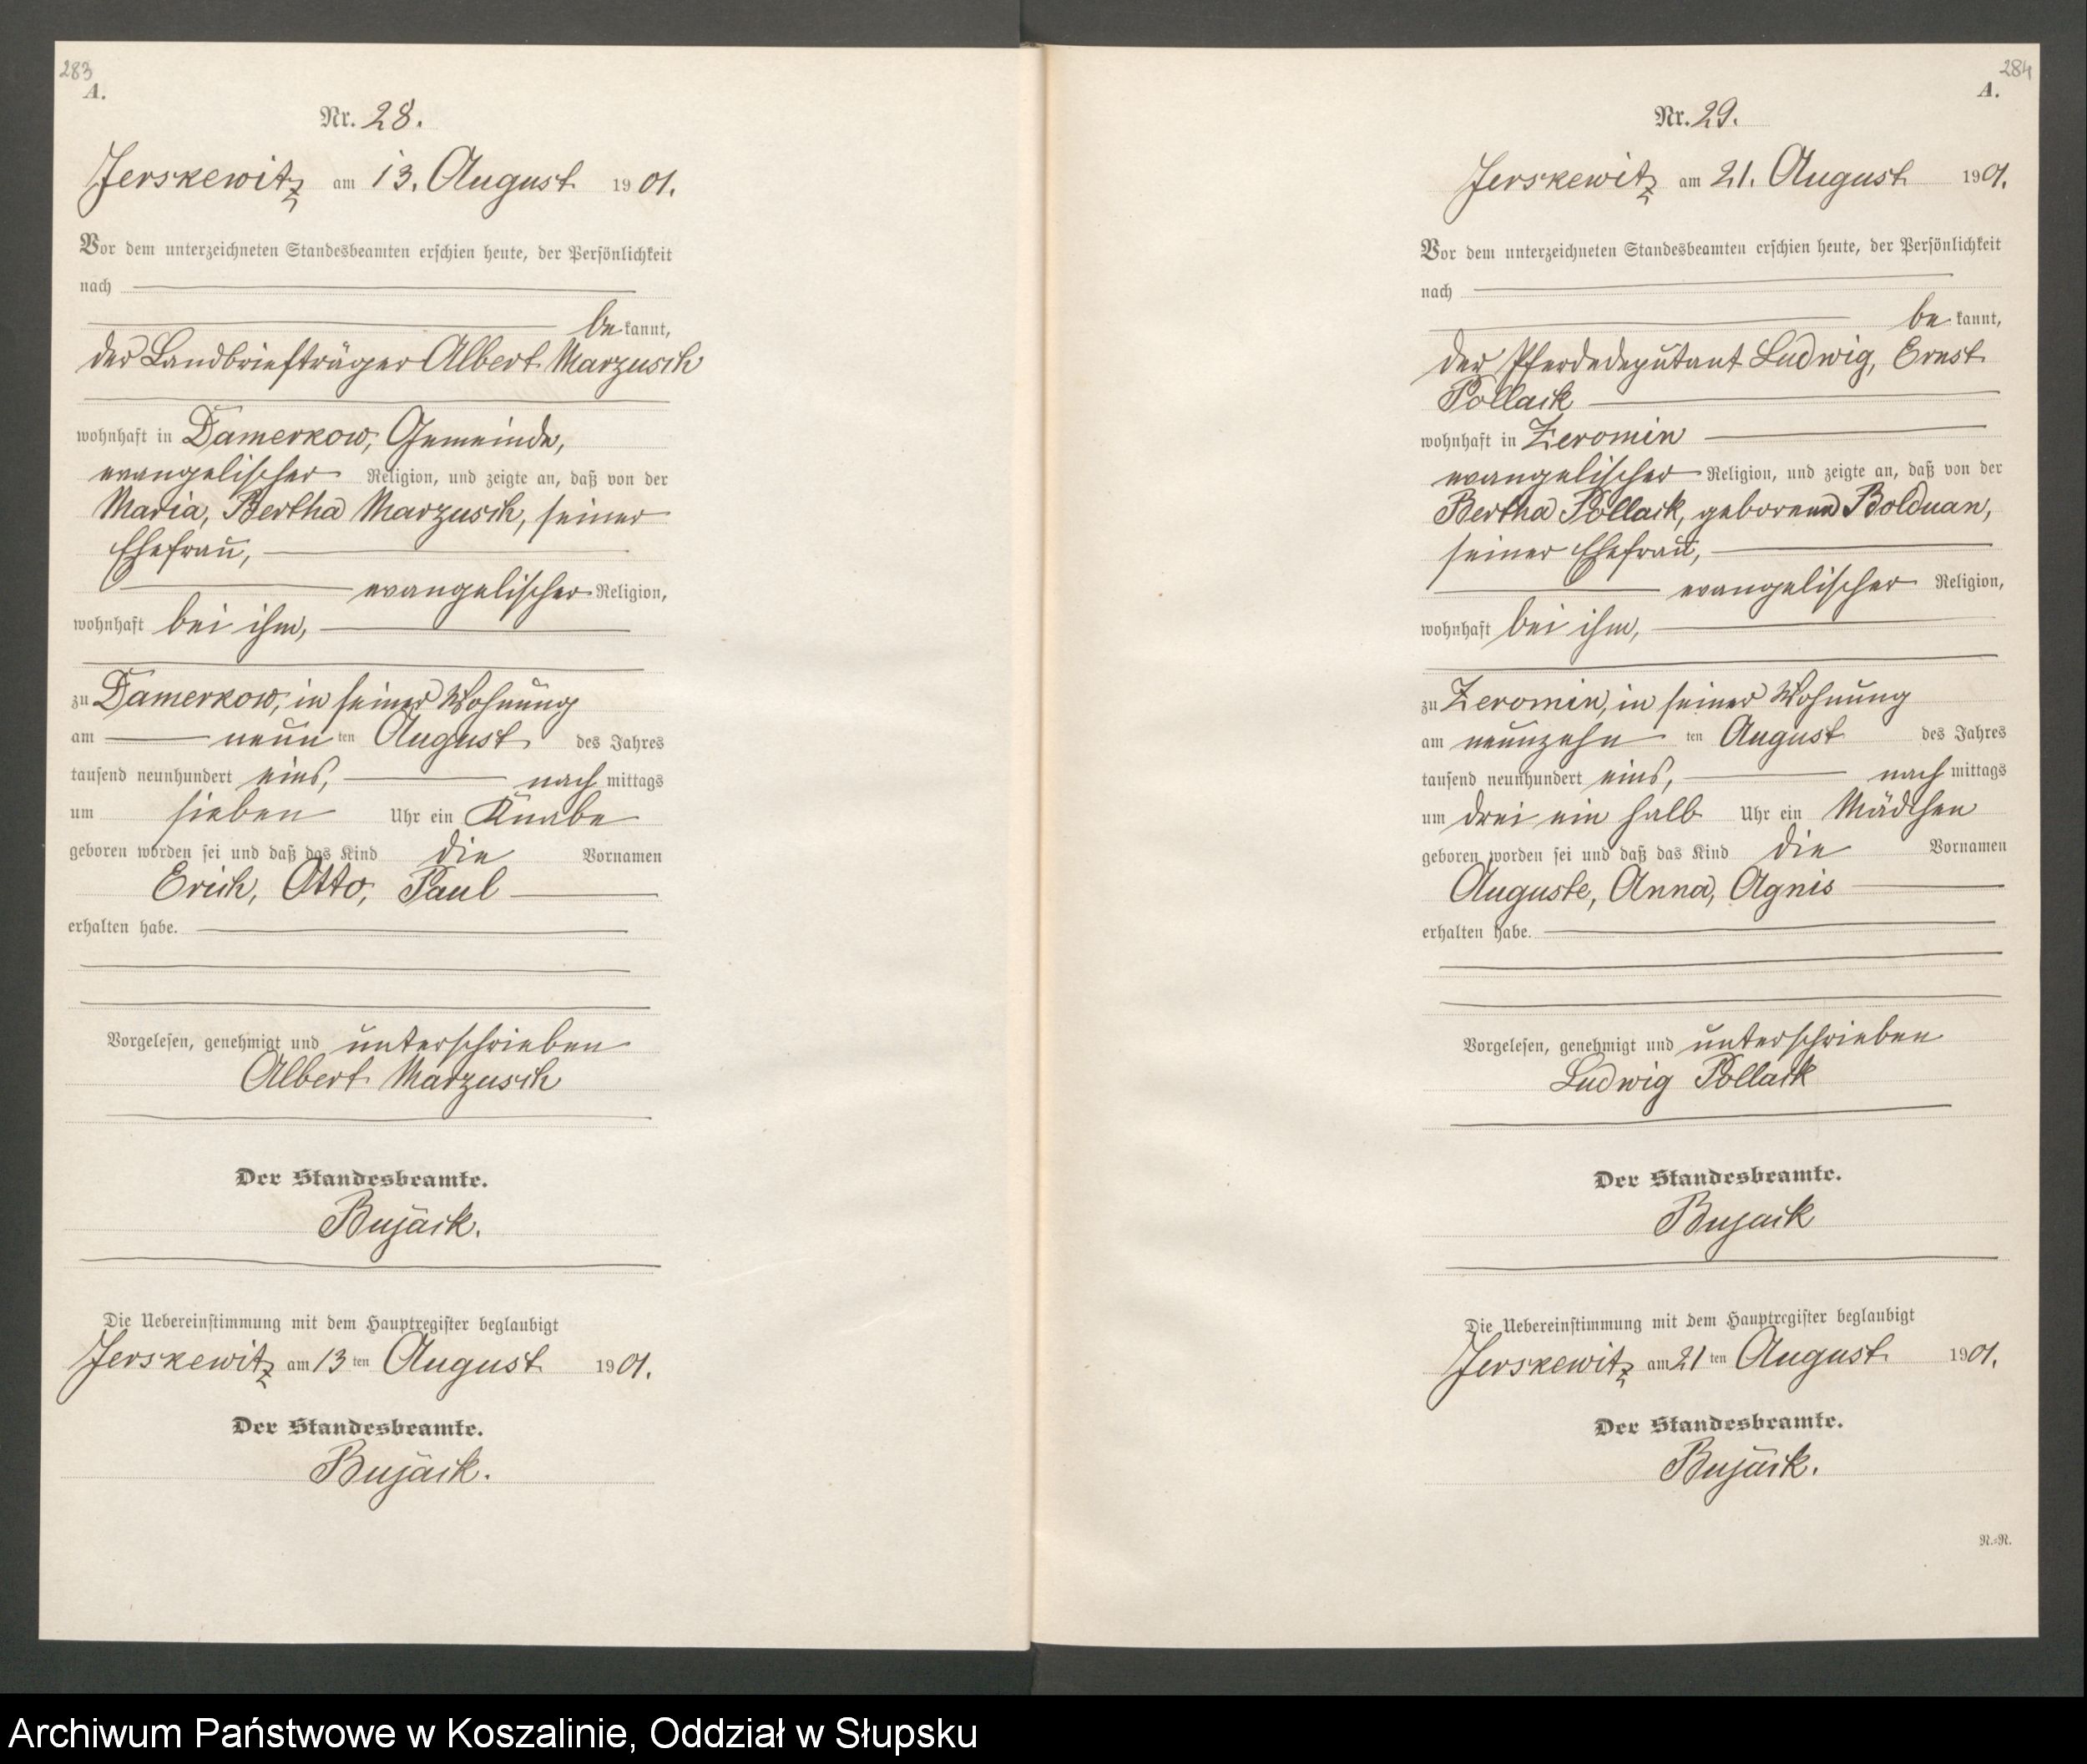 283
A.
Nr. 28.
Jerskewitz am 13. August 1901.
Vor dem unterzeichneten Standesbeamten erschien heute, der Persönlichkeit
nach
bekannt,
der Landbriefträger Albert Marzusch
wohnhaft in Damerkow, Gemeinde,
evangelischer Religion, und zeigte an, daß von der
Maria, Bertha Marzusch, seiner
Ehefrau,
evangelischer Religion,
wohnhaft bei ihm,
zu Damerkow, in seiner Wohnung
am neun ten August des Jahres
tausend neunhundert eins, nach mittags
um sieben Uhr ein Knabe
geboren worden sei und daß das Kind die Vornamen
Erich, Otto, Paul
erhalten habe.
Vorgelesen, genehmigt und unterschrieben
Albert Marzusch
Der Standesbeamte.
Bujack.
Die Uebereinstimmung mit dem Hauptregister beglaubigt
Jerskewitz am 13 ten August 1901.
Der Standesbeamte.
Bujack.
284
A.
Nr. 29.
Jerskewitz am 21. August 1901.
Vor dem unterzeichneten Standesbeamten erschien heute, der Persönlichkeit
nach
bekannt,
der Pferdedeputant Ludwig, Ernst
Pollack
wohnhaft in Zeromin
evangelischer Religion, und zeigte an, daß von der
Bertha Pollack, geborene Bolduan,
seiner Ehefrau,
evangelischer Religion,
wohnhaft bei ihm,
zu Zeromin, in seiner Wohnung
am neunzehn ten August des Jahres
tausend neunhundert eins, nach mittags
um drei ein halb Uhr ein Mädchen
geboren worden sei und daß das Kind die Vornamen
Auguste, Anna, Agnis
erhalten habe.
Vorgelesen, genehmigt und unterschrieben
Ludwig Pollack
Der Standesbeamte.
Bujack
Die Uebereinstimmung mit dem Hauptregister beglaubigt
Jerskewitz am 21 ten August 1901.
Der Standesbeamte.
Bujack.
N.=N.
Archiwum Państwowe w Koszalinie, Oddział w Słupsku